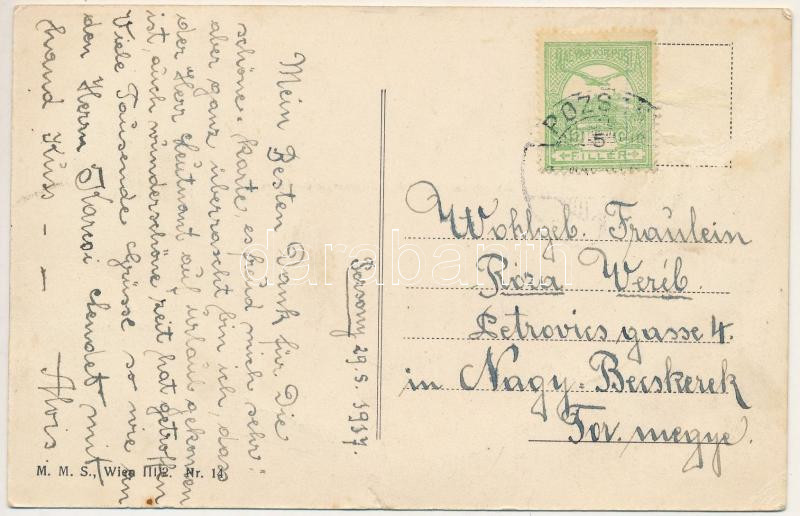 Mein Besten Dank für Die
schöne Karte, es freud mich sehr
aber ganz überrascht bin ich, dass
der Herr Leutnant auf urlaub gekommen
ist, auch wunderschöne zeit hat getroffen
Viele Tausende Grüsse so wie an
den Herrn Karcsi sendet mit
hand Küss - -
Alois
29. 5. 1917.
MAGYAR KIR. POSTA
FILLÉR
POZS
5
Wohlgeb. Fräulein
Róza Weríb.
Petrovics gasse 4.
in Nagy-Becskerek
Tor. megye.
M. M. S., Wien III/2. Nr. 14
darabanth